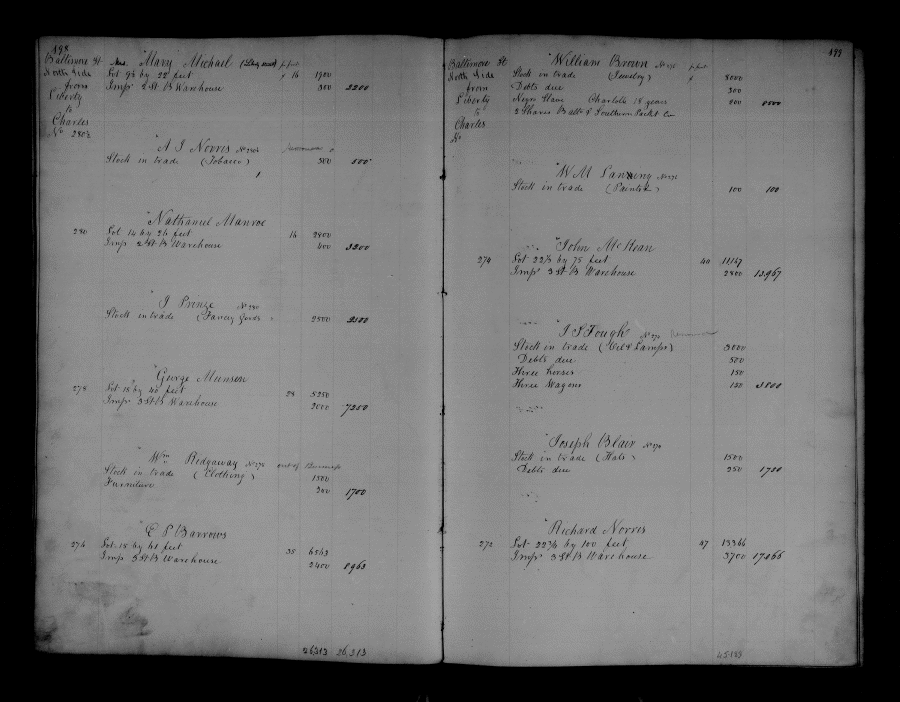 498
Baltimore St
North Side
from
Liberty
to
Charles
No 280½
Mrs. Mary Michael
p foot
Lot 93 by 22 feet 1900
Imp 2 St B Warehouse 300 2200
A J Norris
Stock in trade (Tobacco) 500 500
Nathaniel Munroe
280 Lot 14 by 26 feet 2800
Imp 2 St B Warehouse 600 3200
J Prinze No 280
Stock in trade (Fancy Goods) 2500 2500
George Munson
278 Lot 15 by 40 feet 5250
Imp 3 St B Warehouse 2000 7250
Wm Ridgaway No 276 out of Business
Stock in trade (Clothing) 1500
Furniture 200 1700
E P Barrows
276 Lot 15 by 61 feet 6563
Imp 3 St B Warehouse 2400 8963
26313 26,313
499
Baltimore St
North Side
from
Liberty
to
Charles
No
William Brown
p foot
Stock in trade (Jewelry) 8000
Debts due
Negro Slave Charlotte 18 years
3 Shares Balto & Southern Packet Co
W M Lanning
Stock in trade (Painter) 100 100
John McKean
274 Lot 22⅓ by 75 feet 11167
Imp 3 St B Warehouse 12,967
J S Tough No 272
Stock in trade (Oil & Lamps) 3000
Debts due 500
Three horses 150
Three Wagons 150 3800
Joseph Blair
Stock in trade (Hats) 1500
Debts due 250 1750
Richard Norris
272 Lot by 100 feet 13366
Imp 3 St B Warehouse 3700 17066